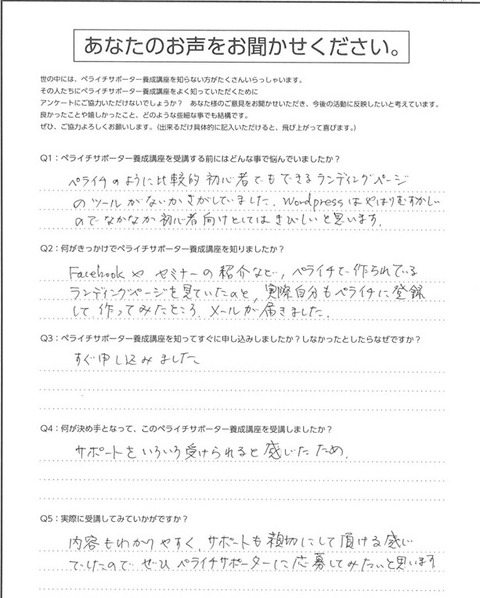 あなたのお声をお聞かせください。
世の中には、ペライチサポーター養成講座を知らない方がたくさんいらっしゃいます。
その人たちにペライチサポーター養成講座をよく知っていただくために
アンケートにご協力いただけないでしょうか？ あなた様のご意見をお聞かせいただき、今後の活動に反映したいと考えています。
良かったことや嬉しかったこと、どのような些細な事でも結構です。
ぜひ、ご協力よろしくお願いします。（出来るだけ具体的に記入いただけると、飛び上がって喜びます。）
Q1：ペライチサポーター養成講座を受講する前にはどんな事で悩んでいましたか？
ペライチのように比較的初心者でもできるランディングページ
のツールがないかさがしていました。Wordpressはやはりむずかしい
のでなかなか初心者向けとしてはきびしいと思います。
Q2：何がきっかけでペライチサポーター養成講座を知りましたか？
Facebookや セミナーの紹介など、ペライチで作られている
ランディングページを見ていたのと、実際自分もペライチに登録
して作ってみたところ、メールが届きました。
Q3：ペライチサポーター養成講座を知ってすぐに申し込みしましたか？しなかったとしたらなぜですか？
すぐ申し込みました
Q4：何が決め手となって、このペライチサポーター養成講座を受講しましたか？
サポートをいろいろ受けられると感じたため.
Q5：実際に受講してみていかがですか？
内容もわかりやすく、サポートも親切にして頂ける感じ
でしたので ぜひ ペライチサポーターに応募してみたいと思います